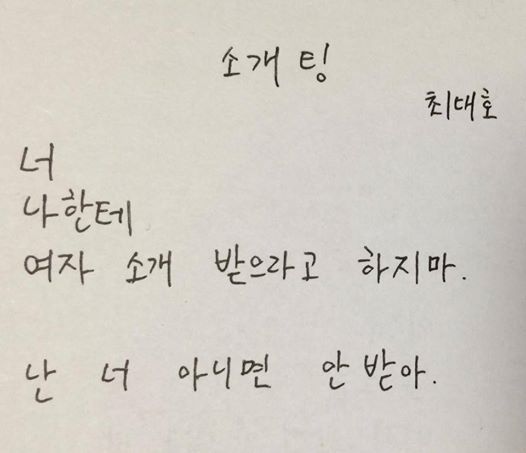 소개팅
최대호
너
나한테
여자 소개 받으라고 하지마.
난 너 아니면 안받아.